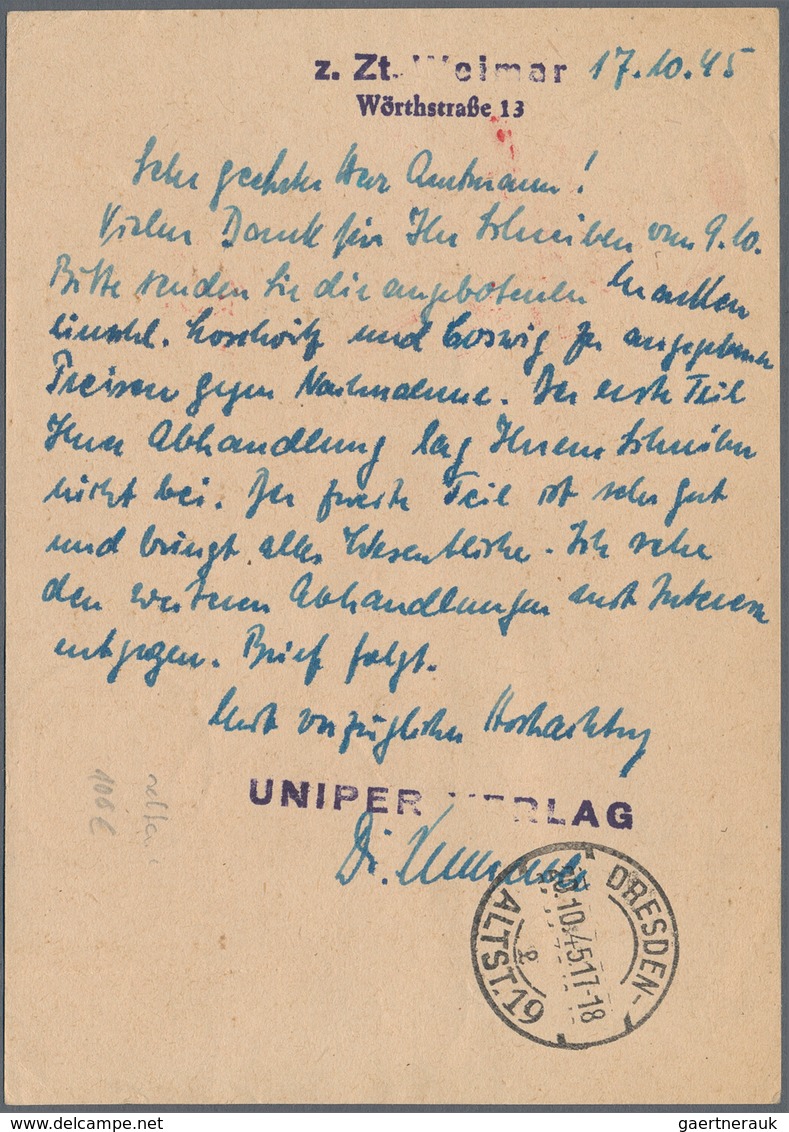 z. Zt. Weimar 17.10.45
Wörthstraße 13
Sehr geehrter Herr Amtmann!
Vielen Dank für Ihr Schreiben vom 9.10.
Bitte senden Sie die angebotenen Marken
einschl. Loschwitz und Coswig zu angegebenen
Preisen gegen Nachnahme. Der erste Teil
Ihrer Abhandlung lag Ihrem Schreiben
nicht bei. Der zweite Teil ist sehr gut
und bringt alles Wesentliche. Ich sehe
den weiteren Abhandlungen mit Interesse
entgegen. Brief folgt.
Mit vorzüglicher Hochachtung
UNIPER VERLAG
Dr.
100 €
DRESDEN-
ALTST. 19
10.45 17-18
gaertnerauk